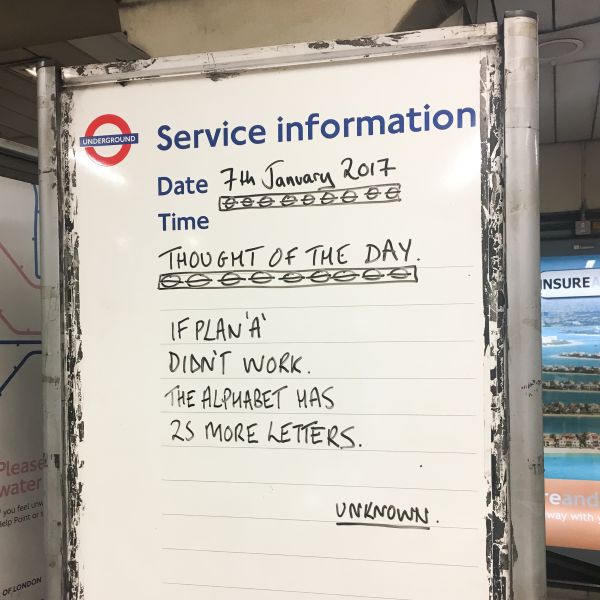 UNDERGROUND
Service information
Date 7th January 2017
Time
THOUGHT OF THE DAY.
IF PLAN 'A'
DIDN'T WORK.
THE ALPHABET HAS
25 MORE LETTERS.
UNKNOWN.
Please
water
you feel unw
Help Point or
OF LONDON
INSURE
reand
way with